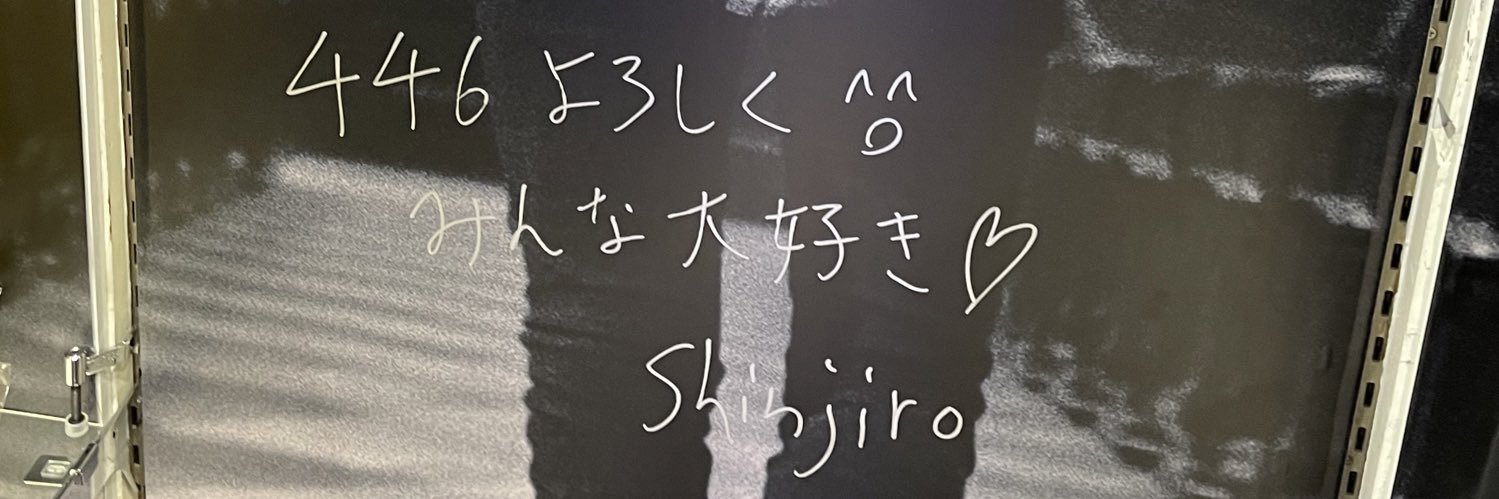 446よろしく
みんな大好き♡
Shinjiro